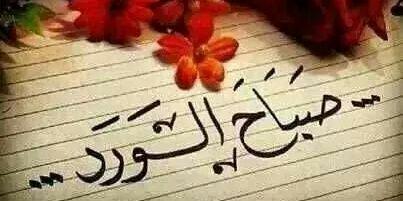 ... صَبَاحَ الــوَرَدَ ...